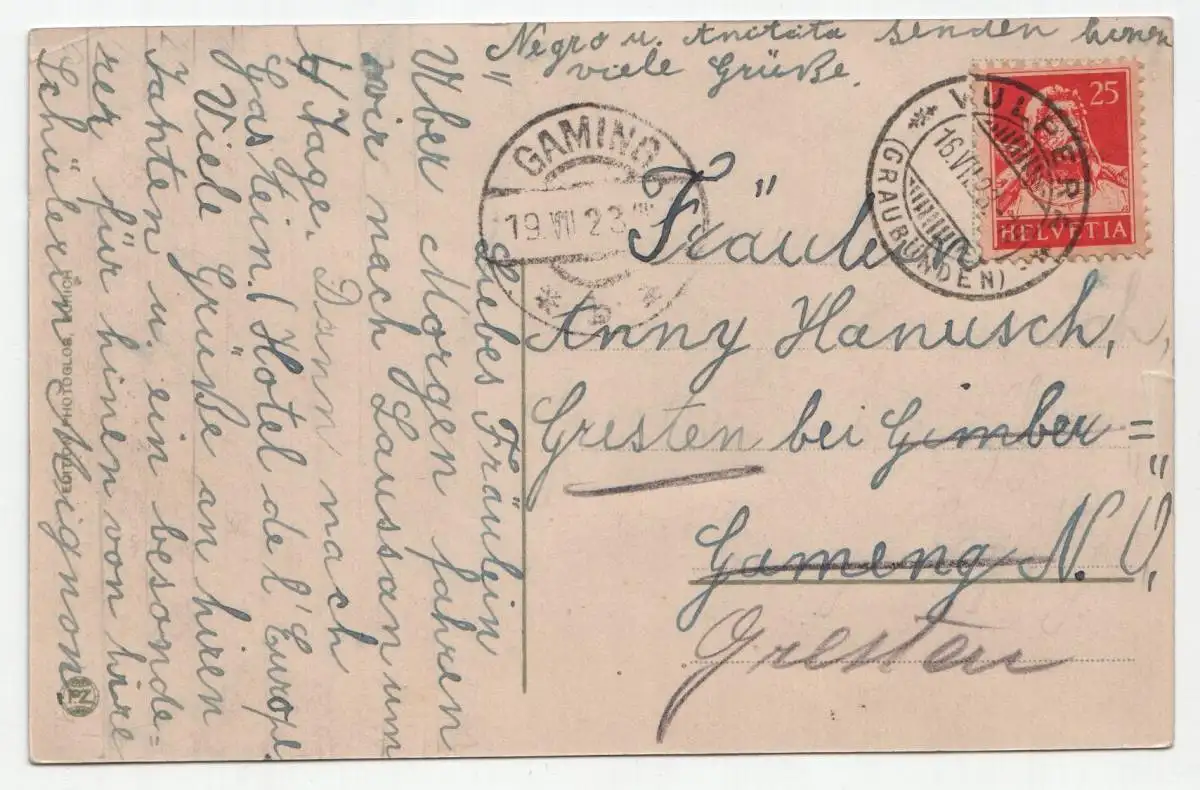 Negro u. Anitäta senden hinen
viele Grüße.
Liebes Fräulein
Über Morgen fahren
wir nach Laussan um
4 Tage. Dann nach
Gastein. (Hotel de l'Europe.
Viele Grüße an hiren
Tahten u. ein besonde=
rer für hinen von hire
Schülerin Mignon.
25
HELVETIA
VULPERA
16.VII.23
(GRAUBÜNDEN)
GAMING
19.VII 23
Fräulein
Anny Hanusch,
Gresten bei Gimber=
Gameng N.Ö,
Gresten
EDITION PHOTOGLOB, ZÜRICH
PZ